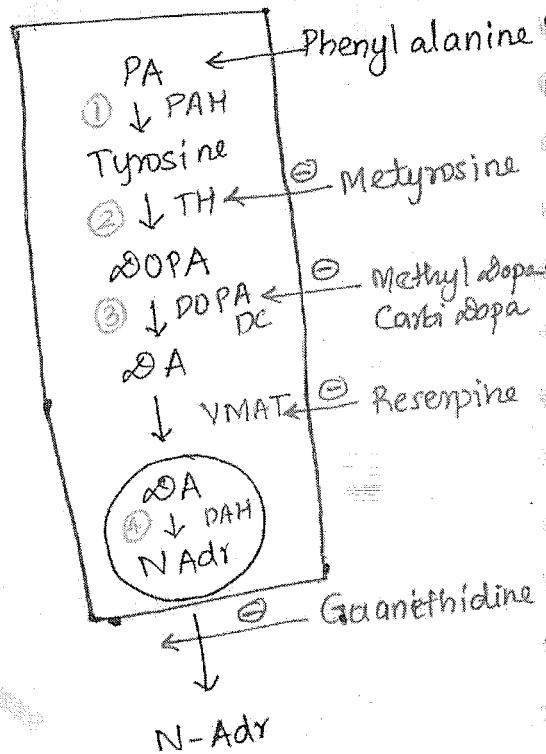 Phenyl alanine
PA
① PAH
Tyrosine
② TH ⊖ Metyrosine
DOPA
③ DOPA DC ⊖ Methyl Dopa
Carbi Dopa
DA
VMAT ⊖ Reserpine
DA
④ DAH
N Adr
⊖ Guanethidine
N-Adr